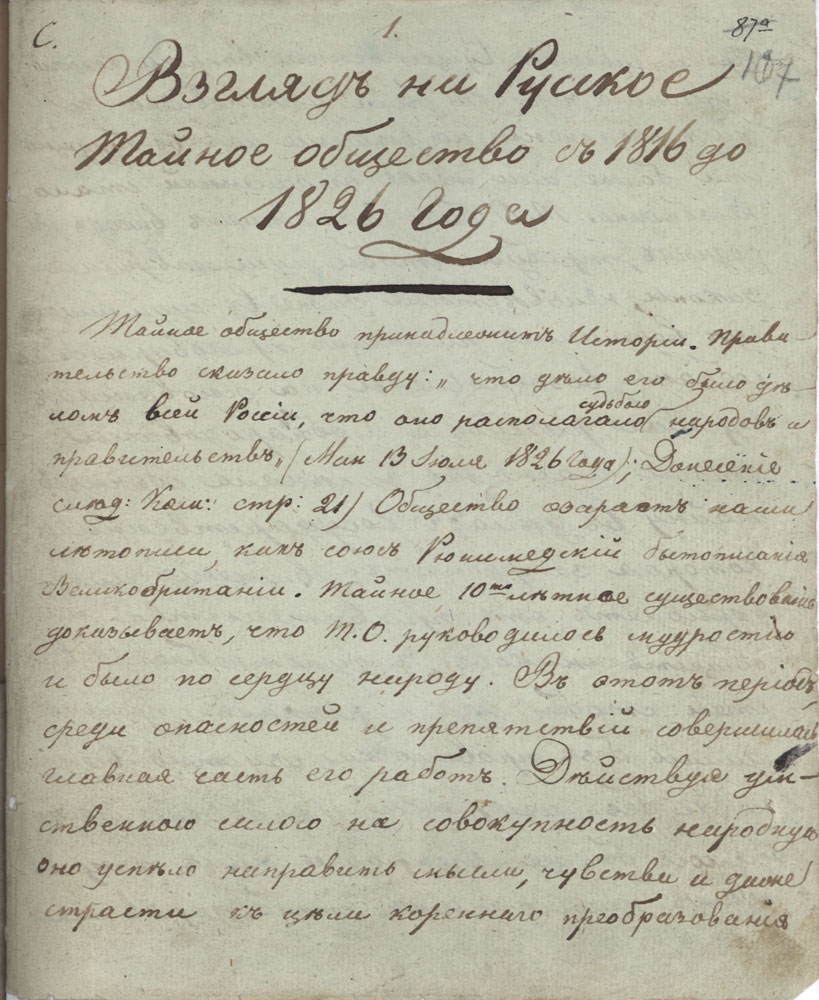 С.
1.
87а
107
Взглядъ на Руское
Тайное общество съ 1816 до
1826 года
Тайное общество принадлежитъ Исторіи. Прави-
тельство сказало правду: „что дѣло его было дѣ-
ломъ всей Россіи, что оно располагало судьбою народовъ и
правительствъ„ (Ман 13 Іюля 1826 года); Донесеніе
слюд: Ком: стр: 21) Общество озараетъ наши
лѣтописи, какъ союзъ Рюнимедскій бытописанія
Великобританіи. Тайное 10ти лѣтное существованіе
доказываетъ, что Т.О. руководилось мудростію
и было по сердцу народу. Въ этотъ періодъ,
среди опасностей и препятствій совершилась
главная часть его работъ. Дѣйствуя ум-
ственною силою на совокупность народную
оно успѣло направить мысли, чувства и даже
страсти къ цѣли кореннаго преобразованія